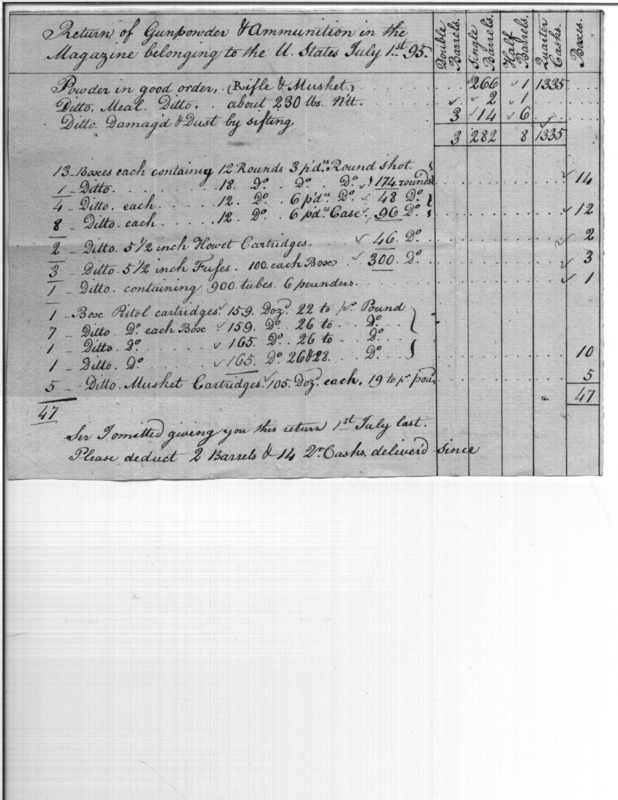 Return of Gunpowder & Ammunition in the
Magazine belonging to the U. States July 1.st 95.
Double Barrels.
Single Barrels.
Half Barrels.
Quarter Casks.
Boxes.
Powder in good order, (Rifle & Musket.) 266 1 1335
Ditto. Meal Ditto.. about 230 lbs. Nt. 2 1
Ditto Damag'd & Dust by sifting, 3 14 6
3 282 8 1335
13 Boxes each containing 12 Rounds 3 pd.rs Round shot.
1 Ditto. 18. Do. Do. Do. 174. rounds 14
4 Ditto. each 12. Do. 6 pd.rs Do. 48 Do.
8 Ditto. each 12. Do. 6 pd.rs Case. 96 Do. 12
2 Ditto. 5 1/2 inch Howet Cartridges. 46. Do. 2
3 Ditto. 5 1/2 inch Fuses. 100. each Box 300. Do. 3
1 Ditto. containing 900 tubes. 6 pounders. 1
1 Box Pistol cartridges. 159. Doz. 22 to pr. Pound
7 Ditto. Do. each Box 159. Do. 26 to Do.
1 Ditto. Do. 165. Do. 26 to Do.
1 Ditto. Do. 165. Do. 26&28. Do. 10
5 Ditto. Musket Cartridges. 105. Doz. each, 19 to pr. poun 5
47 47
Sir I omitted giving you this return 1st July last.
Please deduct 2 Barrels & 14 Qr. Casks, deliver'd since